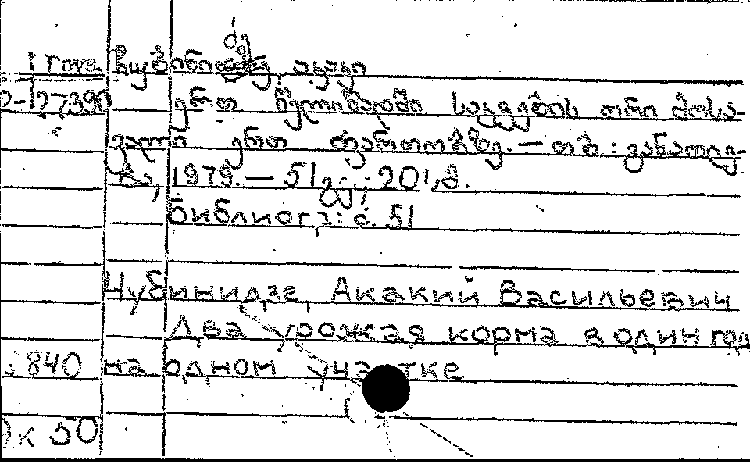 ჩუბინიძე, აკაკი
ერთ წელიწადში საკვების ორი მოსა-
ვალი ერთ ფართობზე. — თბ.: განათლე-
ბა, 1979. — 51 გვ.; 20 სმ.
Библиогр.: с. 51
Чубинидзе, Акакий Васильевич
Два урожая корма в один год
840 на одном участке
50